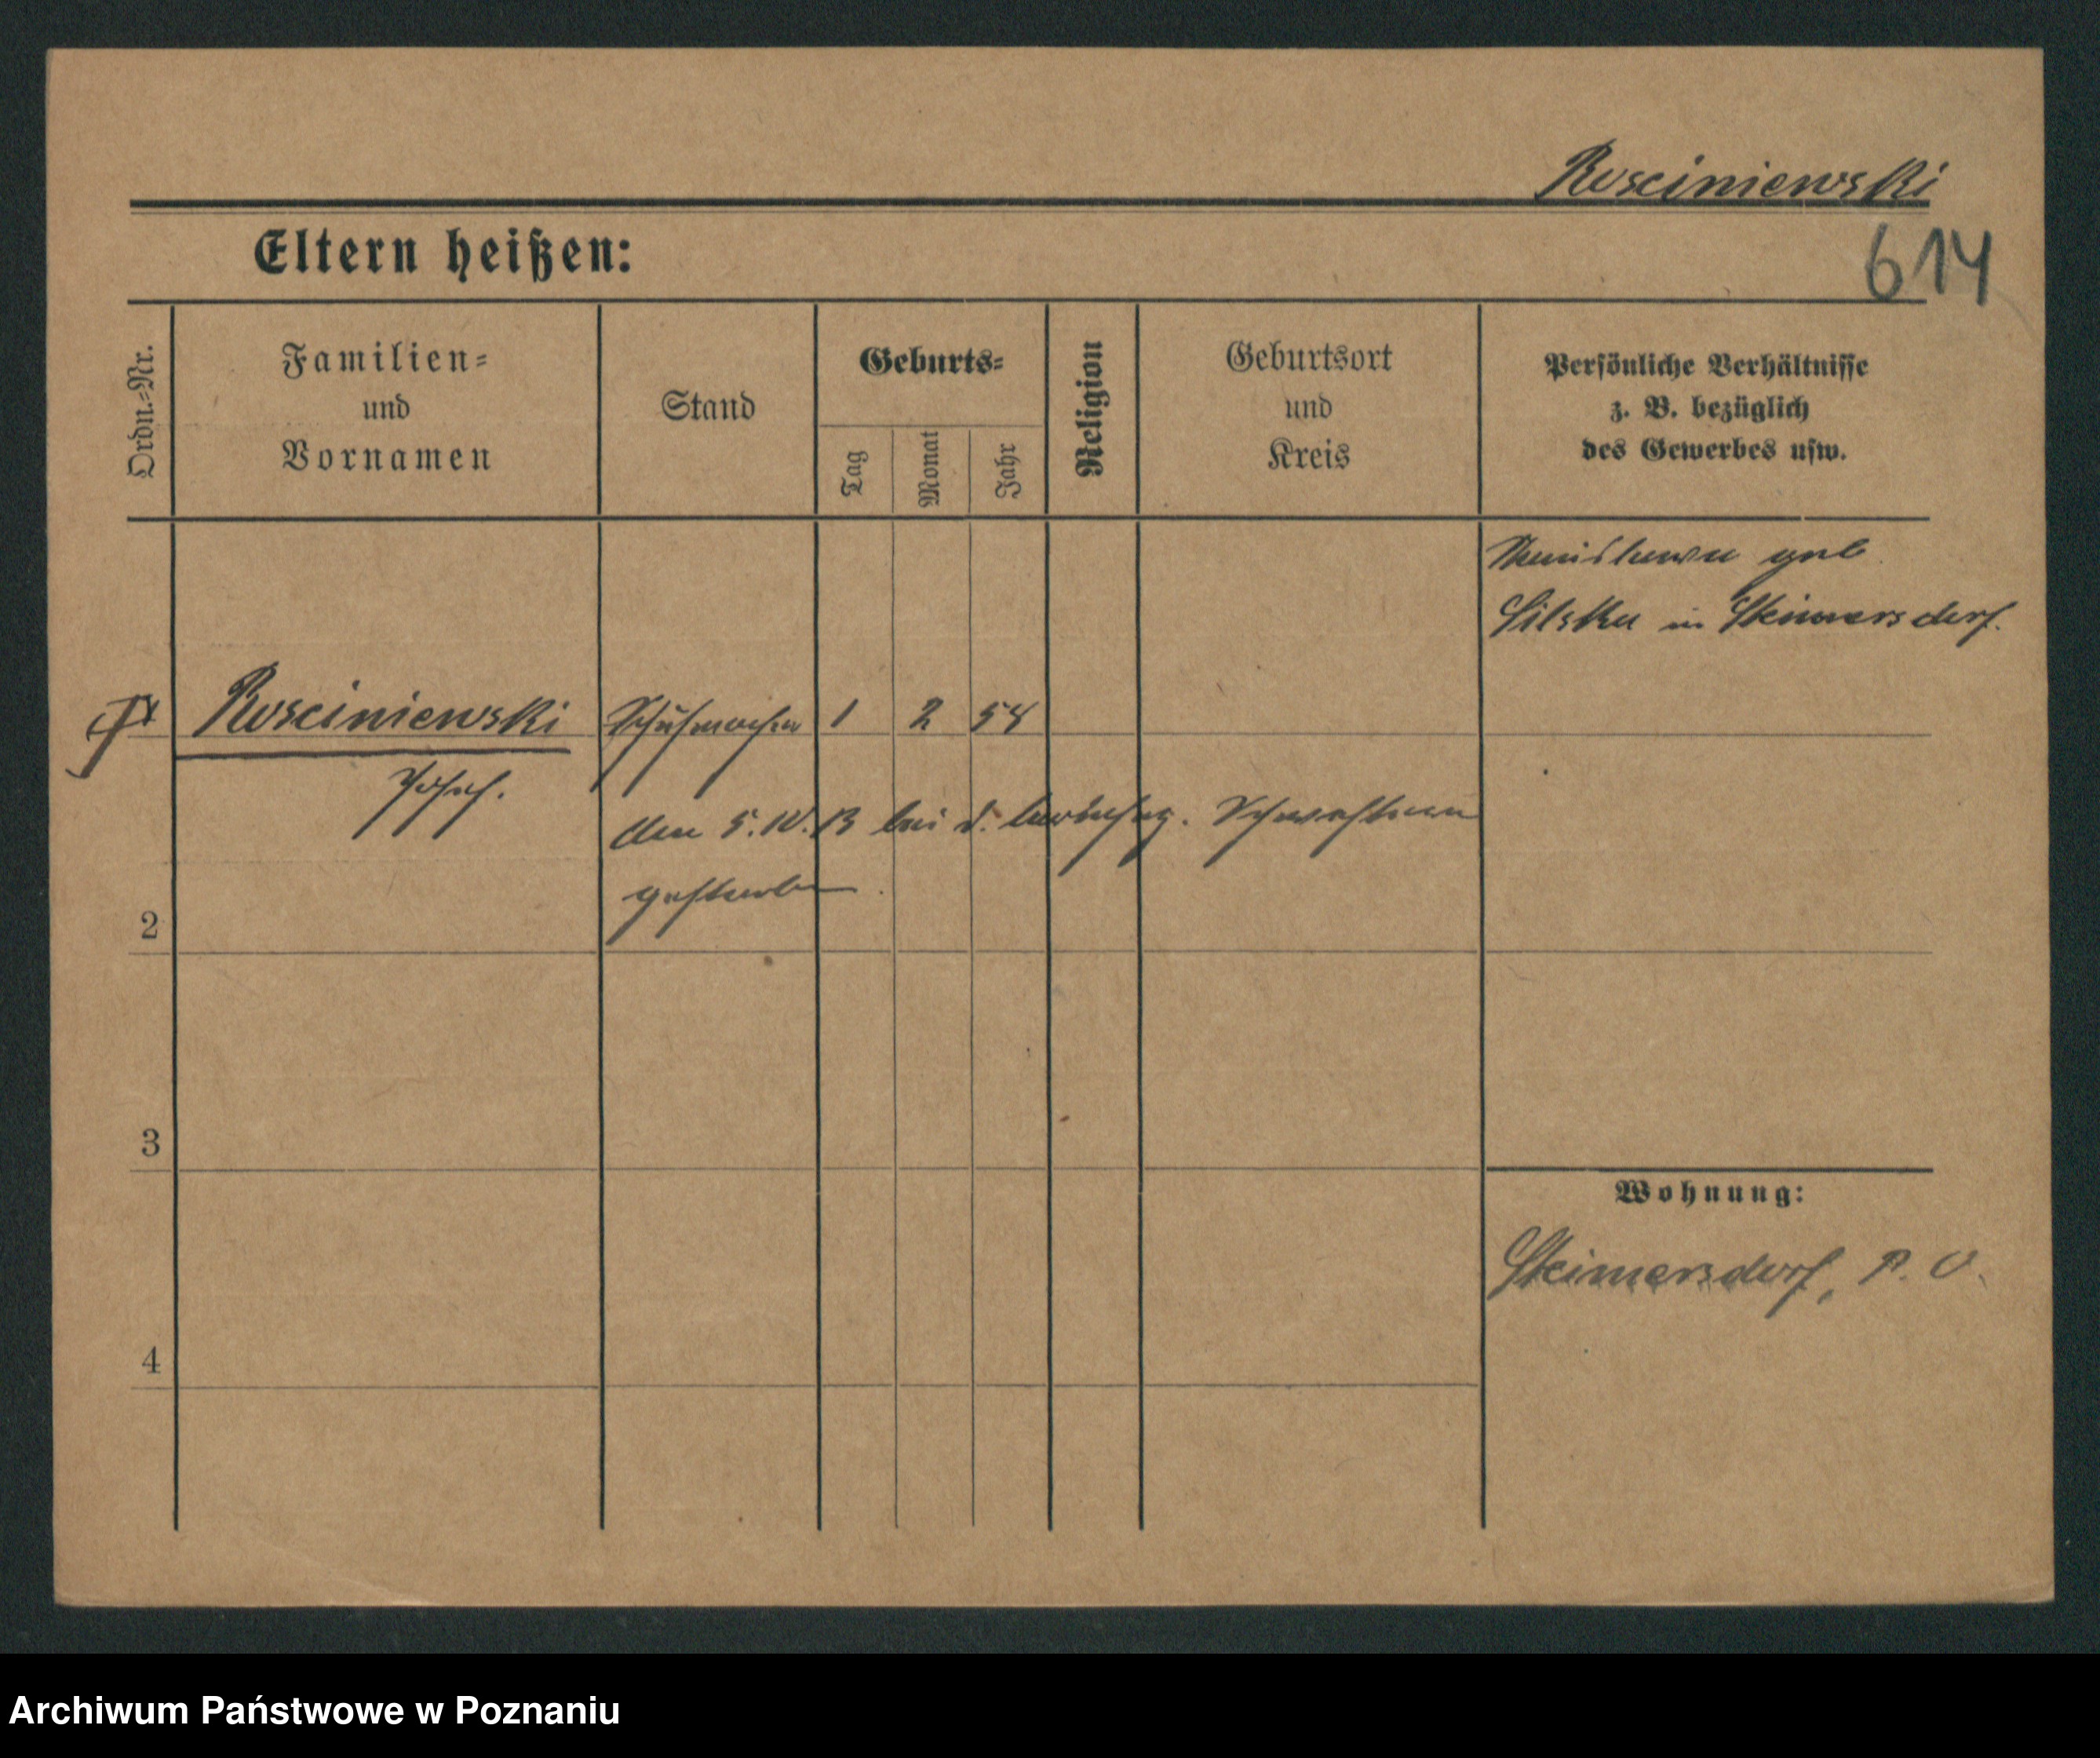 Rosciniewski
Eltern heißen:
614
Ordn.-Nr.
Familien-
und
Vornamen
Stand
Geburts-
Tag
Monat
Jahr
Religion
Geburtsort
und
Kreis
Persönliche Verhältnisse
z. B. bezüglich
des Gewerbes usw.
geb.
in Steimersdorf.
Rosciniewski
Schuhmacher
1
2
Josef.
den 5. 10. 13 bei d.
gestorben
2
3
4
Wohnung:
Steimersdorf, P. O.
Archiwum Państwowe w Poznaniu